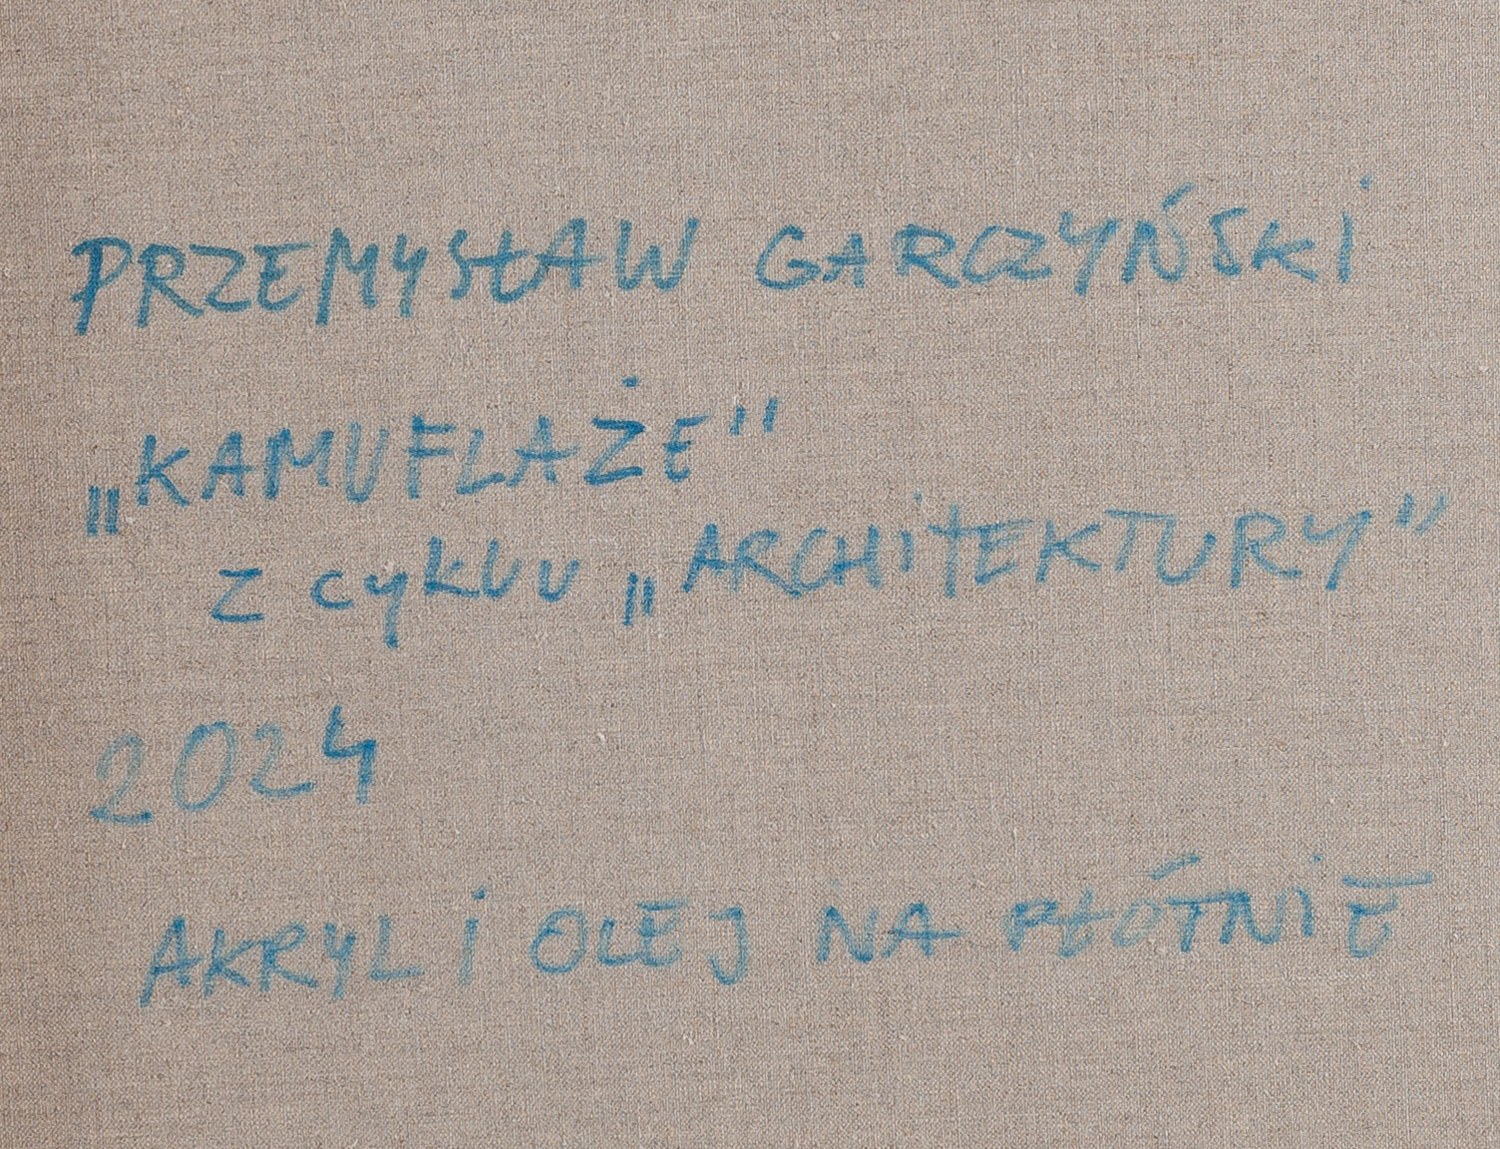 PRZEMYSŁAW GARCZYŃSKI
„KAMUFLAŻE”
z cyklu „ARCHiTEKTURY”
2024
AKRYL i OLEJ NA PŁÓTNiE